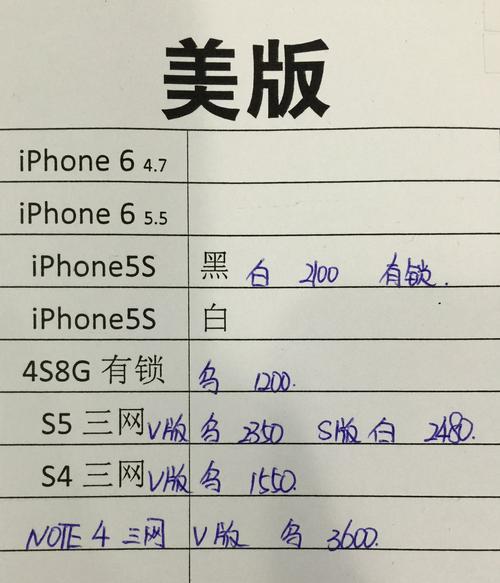 美版
iPhone 6 4.7
iPhone 6 5.5
iPhone5S 黑 白 2100 有锁.
iPhone5S 白
4S8G 有锁 乌 1200.
S5 三网 V版 乌 2350 S版 白 2480.
S4 三网 V版 乌 1550.
NOTE 4 三网 V版 乌 3600.